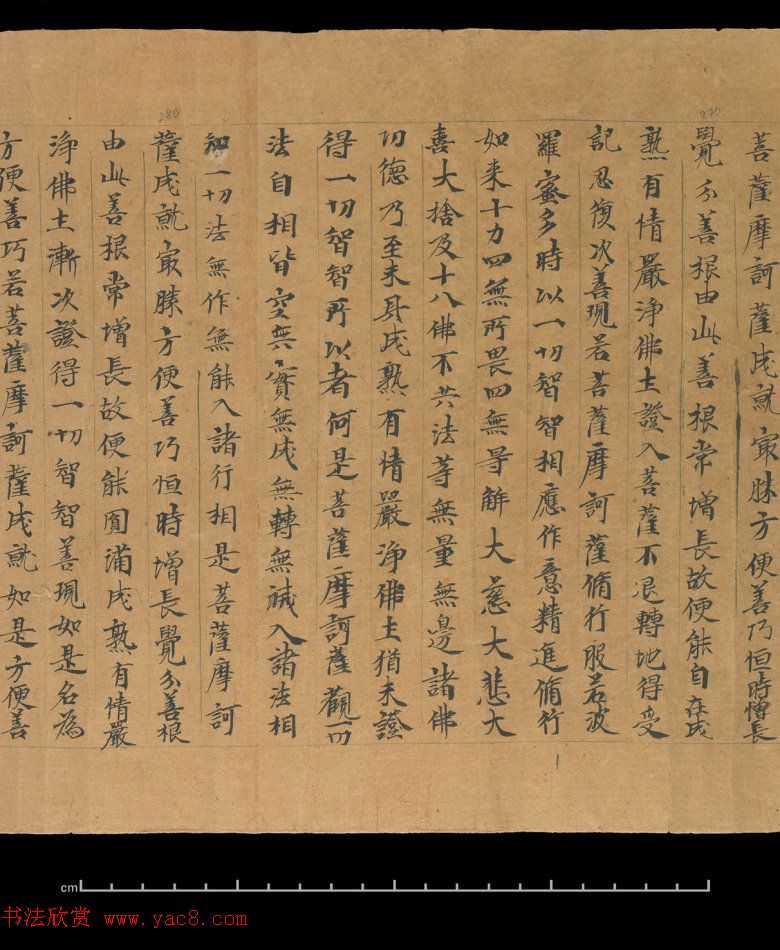 菩薩摩訶薩成就㝡勝方便善巧恒時增長
覺分善根由此善根常增長故便能自在成
熟有情嚴淨佛土證入菩薩不退轉地得受
記忍復次善現若菩薩摩訶薩脩行般若波
羅蜜多時以一切智智相應作意精進脩行
如来十力四無所畏四無导解大慈大悲大
喜大捨及十八佛不共法等無量無邊諸佛
功德乃至未具成熟有情嚴淨佛土猶未證
得一切智智所以者何是菩薩摩訶薩觀一切
法自相皆空無實無成無轉無滅入諸法相
知一切法無作無能入諸行相是菩薩摩訶
薩成就㝡勝方便善巧恒時增長覺分善根
由此善根常增長故便能圓滿成熟有情嚴
淨佛土漸次證得一切智智善現如是名為
方便善巧若菩薩摩訶薩成就如是方便善
270
280
cm
书法欣赏 www.yac8.com